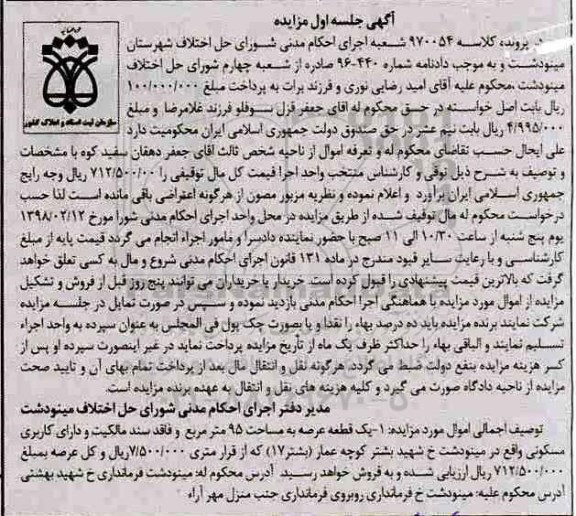 آگهی جلسه اول مزایده
در پرونده کلاسه ۹۷۰۰۵۴ شعبه اجرای احکام مدنی شورای حل اختلاف شهرستان
مینودشت و به موجب دادنامه شماره ۴۴۰-۹۶ صادره از شعبه چهارم شورای حل اختلاف
مینودشت ،محکوم علیه آقای امید رضایی نوری و فرزند برات به پرداخت مبلغ ۱۰۰/۰۰۰/۰۰۰
ریال بابت اصل خواسته در حق محکوم له آقای جعفر قزل سوفلو فرزند غلامرضا و مبلغ
۴/۹۹۵/۰۰۰ ریال بابت نیم عشر در حق صندوق دولت جمهوری اسلامی ایران محکومیت دارد
علی ایحال حسب تقاضای محکوم له و تعرفه اموال از ناحیه شخص ثالث آقای جعفر دهقان سفید کوه با مشخصات
و توصیف به شرح ذیل توقی و کارشناس منتخب واحد اجرا قیمت کل مال توقیفی را ۷۱۲/۵۰۰/۰۰ ریال وجه رایج
جمهوری اسلامی ایران برآورد و اعلام نموده و نظریه مزبور مصون از هرگونه اعتراضی باقی مانده است لذا حسب
درخواست محکوم له مال توقیف شده از طریق مزایده در محل واحد اجرای احکام مدنی شورا مورخ ۱۳۹۸/۰۲/۱۲
یوم پنج شنبه از ساعت ۱۰/۳۰ الی ۱۱ صبح با حضور نماینده دادسرا و مامور اجراء انجام می گردد قیمت پایه از مبلغ
کارشناسی و با رعایت سایر قیود مندرج در ماده ۱۳۱ قانون اجرای احکام مدنی شروع و مال به کسی تعلق خواهد
گرفت که بالاترین قیمت پیشنهادی را قبول کرده است. خریدار یا خریداران می توانند پنج روز قبل از فروش و تشکیل
مزایده از اموال مورد مزایده با هماهنگی اجرا احکام مدنی بازدید نموده و سپس در صورت تمایل در جلسه مزایده
شرکت نمایند برنده مزایده باید ده درصد بهاء را نقدا و یا بصورت چک پول فی المجلس به عنوان سپرده به واحد اجراء
تسلیم نمایند و الباقی بهاء را حداکثر ظرف یک ماه از تأریخ مزایده پرداخت نماید در غیر اینصورت سپرده او پس از
کسر هزینه مزایده بنفع دولت ضبط می گردد. هرگونه نقل و انتقال مال بعد از پرداخت تمام بهای آن و تایید صحت
مزایده از ناحیه دادگاه صورت می گیرد و کلیه هزینه های نقل و انتقال به عهده برنده مزایده است.
مدیر دفتر اجرای احکام مدنی شورای حل اختلاف مینودشت
توصیف اجمالی اموال مورد مزایده: ۱-یک قطعه عرصه به مساحت ۹۵ متر مربع و فاقد سند مالکیت و دارای کاربری
مسکونی واقع در مینودشت خ شهید بشتر کوچه عمار (بشتر۱۷) که از قرار متری ۷/۵۰۰/۰۰۰ریال و کل عرصه بمبلغ
۷۱۲/۵۰۰/۰۰۰ ریال ارزیابی شده و به فروش خواهد رسید. آدرس محکوم له: مینودشت فرمانداری خ شهید بهشتی
آدرس محکوم علیه: مینودشت خ فرمانداری روبروی فرمانداری جنب منزل مهر آراء
سازمان ثبت اسناد و املاک کشور